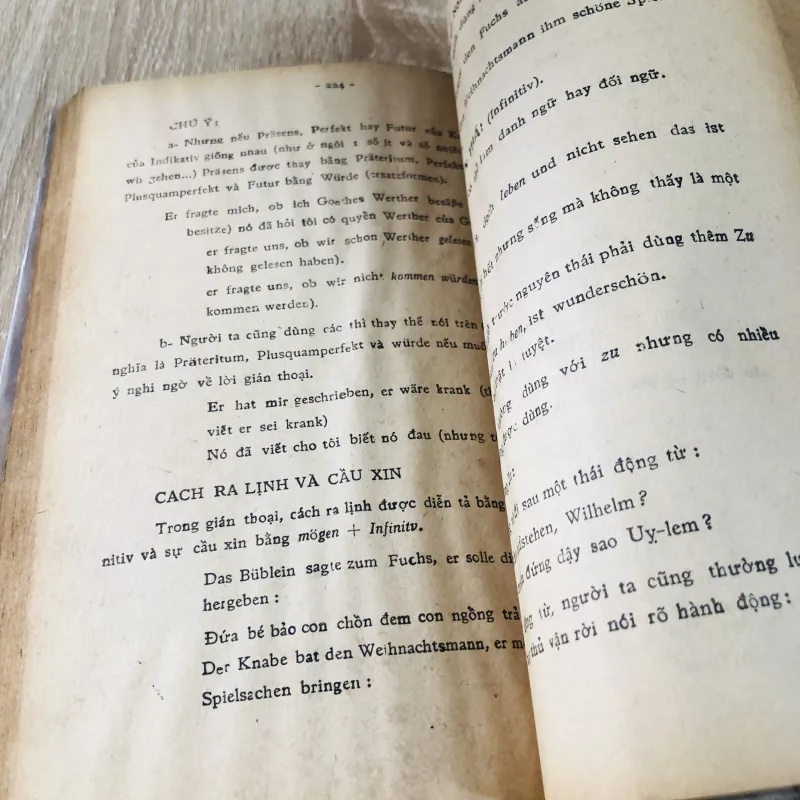 - 224 -
CHÚ Ý:
a- Nhưng nếu Präsens, Perfekt hay Futur của
của Indikativ giống nhau (như ở ngôi 1 số ít và số
wir gehen...) Präsens được thay bằng Präteritum, Perfekt
Plusquamperfekt và Futur bằng Würde (ersatzformen).
Er fragte mich, ob ich Goethes Werther besäße
besitze) nó đã hỏi tôi có quyển Werther của
er fragte uns, ob wir schon Werther gelesen
không gelesen haben).
er fragte uns, ob wir nicht kommen würden
kommen werden).
b- Người ta cũng dùng các thì thay thế nói trên
nghĩa là Präteritum, Plusquamperfekt và würde nếu
ý nghi ngờ về lời gián thoại.
Er hat mir geschrieben, er wäre krank
viết er sei krank)
Nó đã viết cho tôi biết nó đau (nhưng
CACH RA LỊNH VÀ CẦU XIN
Trong gián thoại, cách ra lịnh được diễn tả bằng
nitiv và sự cầu xin bằng mögen + Infinitv.
Das Büblein sagte zum Fuchs, er solle
hergeben :
Đứa bé bảo con chồn đem con ngỗng trả
Der Knabe bat den Weihnachtsmann, er
Spielsachen bringen :
den Fuchs
Weihnachtsmann ihm schöne
(Infinitiv).
làm danh ngữ hay đối ngữ.
doch leben und nicht sehen das ist
nhưng sống mà không thấy là một
trước nguyên thái phải dùng thêm Zu
haben, ist wunderschön.
tuyệt.
dùng với zu nhưng có nhiều
được dùng.
sau một thái động từ :
Wilhelm ?
đứng dậy sao Uy-lem ?
từ, người ta cũng thường
thủ vận rời nói rõ hành động: